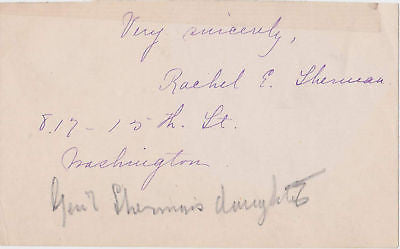 Very sincerely,
Rachel E. Sherman.
817-15th. St.
Washington.
Gen'l Sherman's daughter